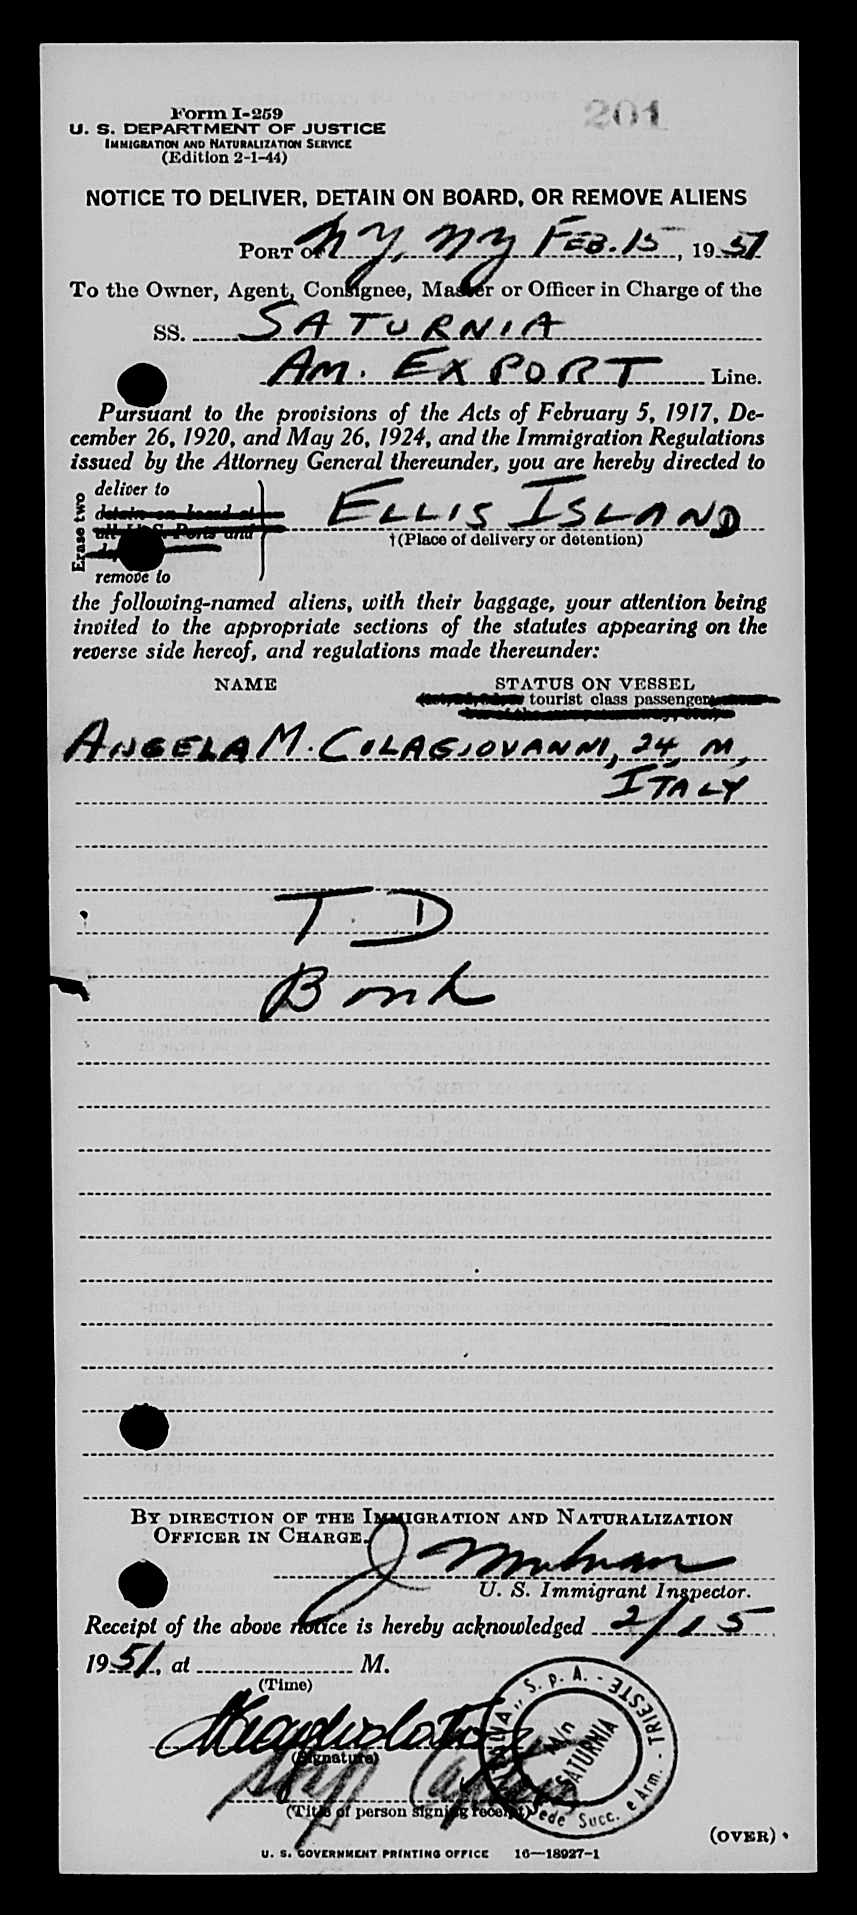 201
Form I-259
U. S. DEPARTMENT OF JUSTICE
IMMIGRATION AND NATURALIZATION SERVICE
(Edition 2-1-44)
NOTICE TO DELIVER, DETAIN ON BOARD, OR REMOVE ALIENS
PORT OF NY, NY FEB. 15, 1951
To the Owner, Agent, Consignee, Master or Officer in Charge of the
SS. SATURNIA
AM. EXPORT Line.
Pursuant to the provisions of the Acts of February 5, 1917, De-
cember 26, 1920, and May 26, 1924, and the Immigration Regulations
issued by the Attorney General thereunder, you are hereby directed to
Erase two
deliver to
detain on board at
all U. S. Ports and
remove to
ELLIS ISLAND
†(Place of delivery or detention)
the following-named aliens, with their baggage, your attention being
invited to the appropriate sections of the statutes appearing on the
reverse side hereof, and regulations made thereunder:
NAME STATUS ON VESSEL
tourist class passenger
ANGELA M. COLAGIOVANNI, 24, M,
ITALY
T. D
Bond
BY DIRECTION OF THE IMMIGRATION AND NATURALIZATION
OFFICER IN CHARGE.
U. S. Immigrant Inspector.
Receipt of the above notice is hereby acknowledged 2/15
1951, at M.
(Time)
(Signature)
(Title of person signing receipt)
S. p. A. - TRIESTE
M/n
SATURNIA
Sede Succ. e Arm. -
(OVER)
U. S. GOVERNMENT PRINTING OFFICE 16—18927-1